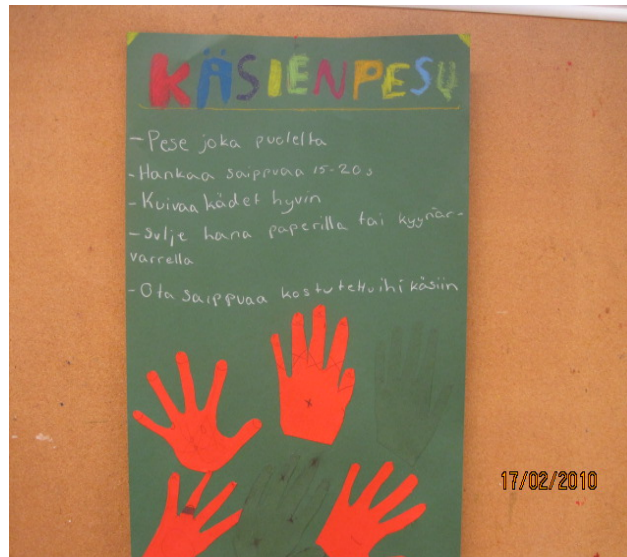 KÄSIENPESU
- Pese joka puolelta
- Hankaa saippuaa 15-20s
- Kuivaa kädet hyvin
- Sulje hana paperilla tai kyynär-
varrella
- Ota saippuaa kostutettuihi käsiin
17/02/2010